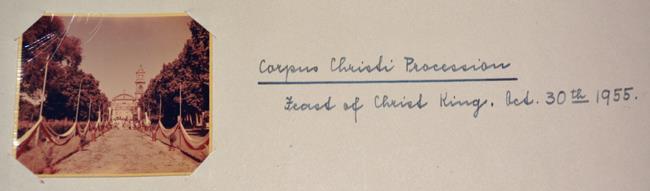 Corpus Christi Procession
Feast of Christ King. Oct. 30th 1955.